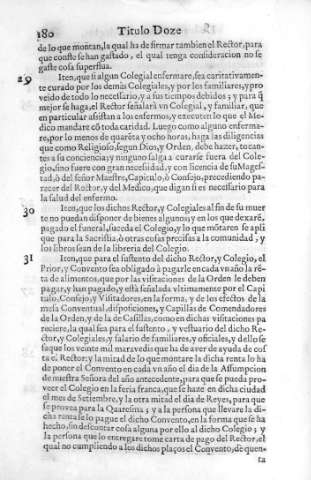 180 Titulo Doze
do lo que montan, la qual ha de firmar tambien el Rector, para
que conste se han gastado, el qual tenga consideracion no se
gaste cosa superflua.
29 Iten, que si algun Colegial enfermare, sea caritativamen-
te curado por los demàs Colegiales, y por los familiares, y pro
veido de todo lo necessario, y a sus tiempos debidos; y para q̃
mejor se haga, el Rector señalarà vn Colegial, y familiar, que
en particular assistan a los enfermos, y executen lo que el Me-
dico mandare cõ toda caridad. Luego como alguno enferma-
re, por lo menos de quarẽta y ocho horas, haga las diligencias
que como Religioso, segun Dios, y Orden, debe hazer, tocan-
tes a su conciencia; y ninguno salga a curarse fuera del Cole-
gio, sino fuere con gran necessidad, y con licencia de su Mages-
tad, ò del señor Maestre, Capitulo, ò Consejo, precediendo pa-
recer del Rector, y del Medico, que digan si es necessario para
la salud del enfermo.
30 Iten, que los dichos Rector, y Colegiales al fin de su muer
te no puedan disponer de bienes algunos; y en los que dexarẽ,
pagado el funeral, suceda el Colegio, y lo que mõtaren se apli
que para la Sacristia, ò otras cosas precisas a la comunidad, y
los libros sean de la libreria del Colegio.
31 Iten, que para el sustento del dicho Rector, y Colegio, el
Prior, y Convento sea obligado à pagarle en cada vn año la rẽ-
ta de alimentos, que por las visitaciones de la Orden le deben
pagar, y han pagado, y està señalada vltimamente por el Capi
tulo, Consejo, y Visitadores, en la forma, y de los efectos de la
mesa Conventual, disposiciones, y Capillas de Comendadores
de la Orden, y de la de Casillas, como en dichas visitaciones pa
reciere, la qual sea para el sustento, y vestuario del dicho Re-
ctor, y Colegiales, y salario de familiares, y oficiales, y dello se
saque los veinte mil maravedis que ha de aver de ayuda de cos
ta el Rector: y la mitad de lo que montare la dicha renta lo ha
de poner el Convento en cada vn año el dia de la Assumpcion
de nuestra Señora del año antecedente, para que se pueda pro-
veer el Colegio en la feria franca, que se haze en dicha ciudad
el mes de Setiembre, y la otra mitad el dia de Reyes, para que
se provea para la Quaresma; y a la persona que llevare la di-
cha renta se lo pague el dicho Convento, en la forma que se ha
hecho, sin descontar cosa alguna por ello al dicho Colegio; y
la persona que lo entregare tome carta de pago del Rector, el
qual no cumpliendo a los dichos plaços el Convento, dè quen-
ta